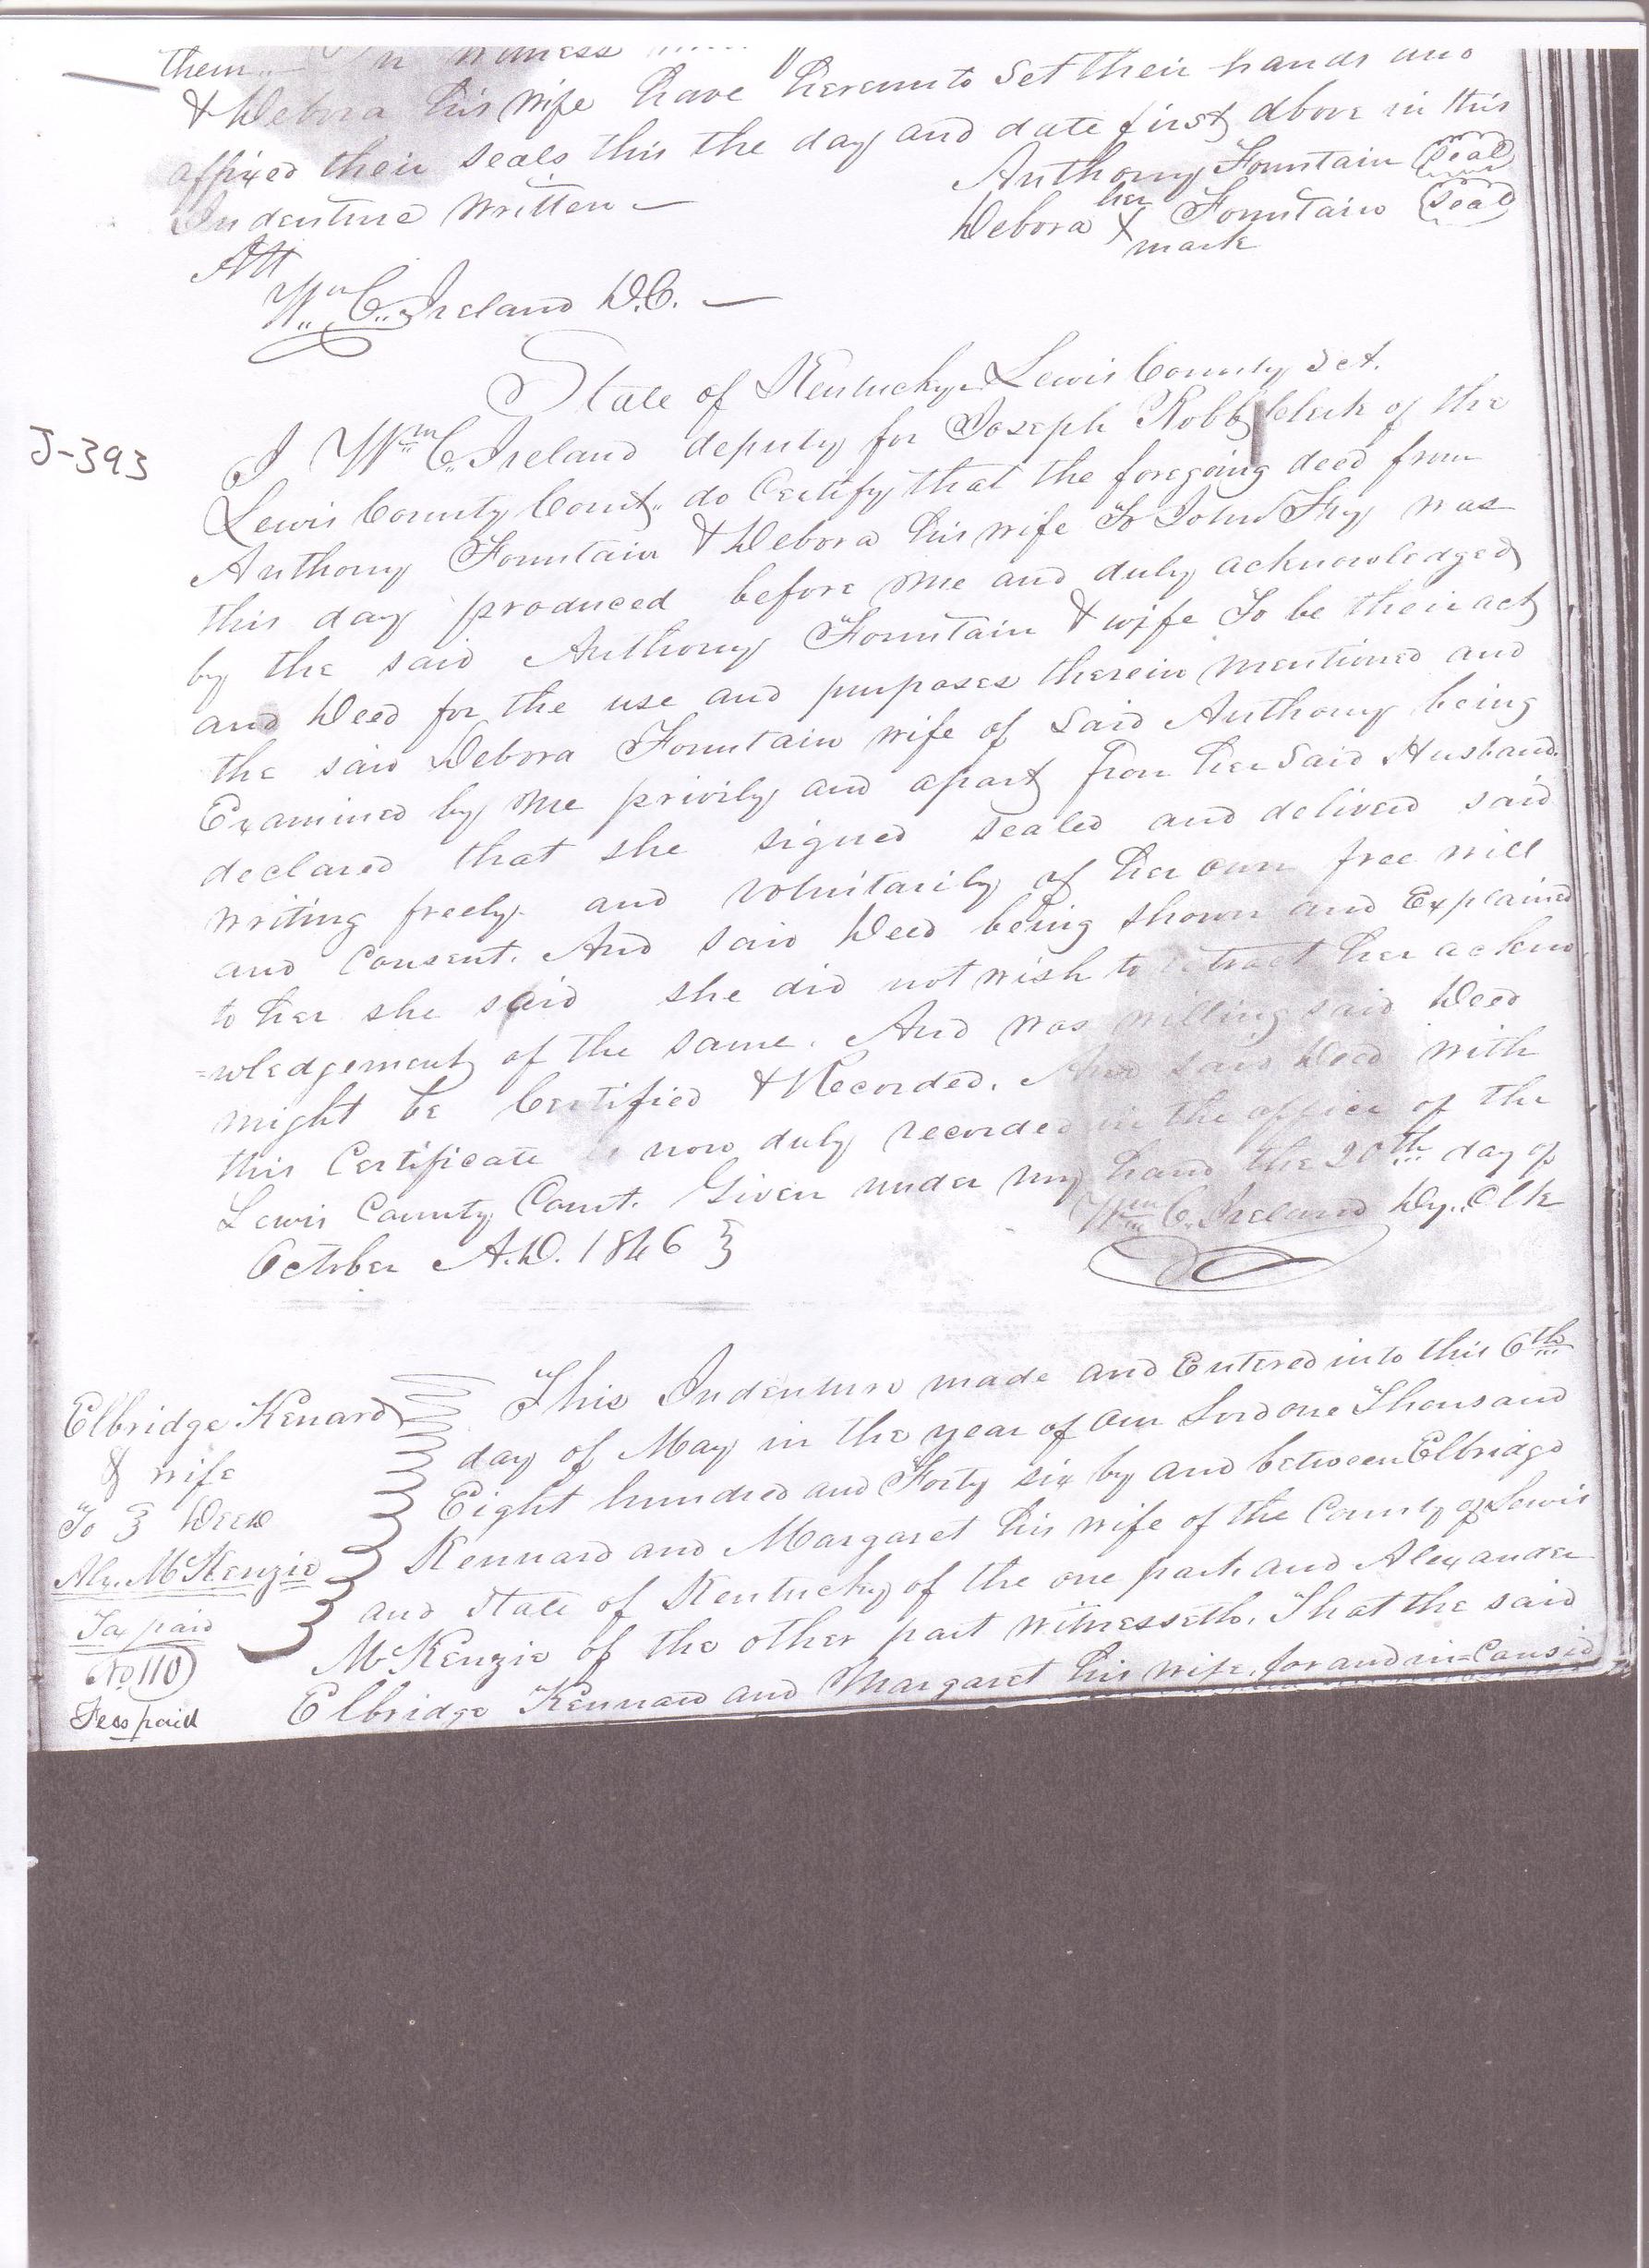 them.. In witness
& Debora his wife have hereunto set their hands and
affixed their seals this the day and date first above in this
Indenture written —
Anthony Fountain (Seal)
Debora her X mark Fountain (Seal)
Att
Wm C. Ireland D.C. —
State of Kentucky Lewis County Sct.
J-393
I Wm C. Ireland deputy for Joseph Robb clerk of the
Lewis County Court, do Certify that the foregoing deed from
Anthony Fountain & Debora his wife To John Fry was
this day produced before me and duly acknowledged
by the said Anthony Fountain & wife To be their act
and Deed for the use and purposes therein mentioned and
the said Debora Fountain wife of said Anthony being
Examined by me privily and apart from her said Husband.
declared that she signed sealed and deliverd said
writing freely and voluntarily of her own free will
and Consent. And said Deed being shown and Explained
to her she said she did not wish to retract her ackno
=wledgement of the same. And was willing said Deed
might be Certified & Recorded. And said Deed with
this Certificate is now duly recorded in the office of the
Lewis County Court. Given under my hand the 20th day of
October A.D. 1846 }
Wm C. Ireland Dy. Clk
Elbridge Kenard
& wife
To } Deed
Alx. McKenzie
Tax paid
No 110
Fees paid
This Indenture made and Entered into this 6th
day of May in the year of our Lord one Thousand
Eight hundred and Forty six by and between Elbridge
Kennard and Margaret his wife of the County of Lewis
and State of Kentucky of the one part and Alexander
McKenzie of the other part witnesseth. That the said
Elbridge Kennard and Margaret his wife, for and in Consid